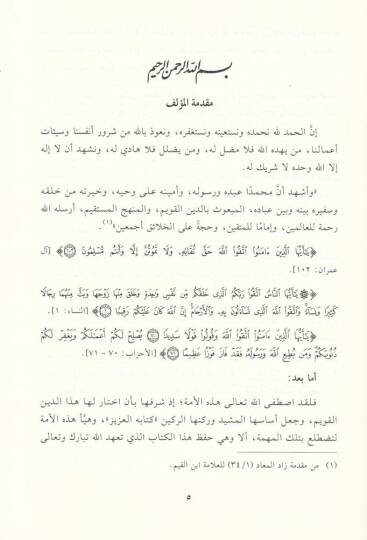 بسم الله الرحمن الرحيم
مقدمة المؤلف
إنَّ الحمد لله نحمده ونستعينه ونستغفره، ونعوذ بالله من شرور أنفسنا وسيئات
أعمالنا، من يهده الله فلا مضل له، ومن يضلل فلا هادي له، ونشهد أن لا إله
إلا الله وحده لا شريك له.
«وأشهد أنَّ محمدًا عبده ورسوله، وأمينه على وحيه، وخيرته من خلقه
وسفيره بينه وبين عباده، المبعوث بالدين القويم، والمنهج المستقيم، أرسله الله
رحمة للعالمين، وإمامًا للمتقين، وحجةً على الخلائق أجمعين»(١).
﴿يَٰٓأَيُّهَا ٱلَّذِينَ ءَامَنُوا۟ ٱتَّقُوا۟ ٱللَّهَ حَقَّ تُقَاتِهِۦ وَلَا تَمُوتُنَّ إِلَّا وَأَنتُم مُّسْلِمُونَ ١٠٢﴾ [آل
عمران: ١٠٢].
﴿يَٰٓأَيُّهَا ٱلنَّاسُ ٱتَّقُوا۟ رَبَّكُمُ ٱلَّذِى خَلَقَكُم مِّن نَّفْسٍ وَٰحِدَةٍ وَخَلَقَ مِنْهَا زَوْجَهَا وَبَثَّ مِنْهُمَا رِجَالًا
كَثِيرًا وَنِسَآءً وَٱتَّقُوا۟ ٱللَّهَ ٱلَّذِى تَسَآءَلُونَ بِهِۦ وَٱلْأَرْحَامَ إِنَّ ٱللَّهَ كَانَ عَلَيْكُمْ رَقِيبًا ١﴾ [النساء: ١].
﴿يَٰٓأَيُّهَا ٱلَّذِينَ ءَامَنُوا۟ ٱتَّقُوا۟ ٱللَّهَ وَقُولُوا۟ قَوْلًا سَدِيدًا ٧٠ يُصْلِحْ لَكُمْ أَعْمَٰلَكُمْ وَيَغْفِرْ لَكُمْ
ذُنُوبَكُمْ وَمَن يُطِعِ ٱللَّهَ وَرَسُولَهُۥ فَقَدْ فَازَ فَوْزًا عَظِيمًا ٧١﴾ [الأحزاب: ٧٠ - ٧١].
أما بعد:
فلقد اصطفى الله تعالى هذه الأمة؛ إذ شرفها بأن اختار لها هذا الدين
القويم، وجعل أساسها المشيد وركنها الركين «كتابه العزيز»، وهيَّأ هذه الأمة
لتضطلع بتلك المهمة، ألا وهي حفظ هذا الكتاب الذي تعهد الله تبارك وتعالى
(١) من مقدمة زاد المعاد (٣٤/١) للعلامة ابن القيم.
٥